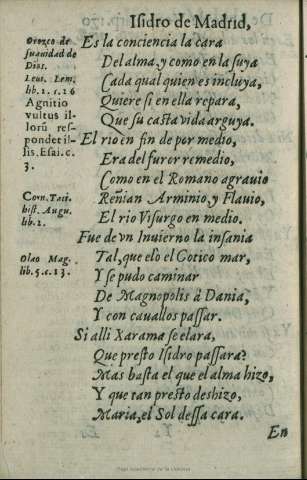 Isidro de Madrid,
Es la conciencia la cara
Del alma, y como en la suya
Cada qual quien es incluya,
Quiere si en ella repara,
Que su casta vida arguya.
El rio en fin de por medio,
Era del furor remedio,
Como en el Romano agrauio
Reñian Arminio, y Flauio,
El rio Visurgo en medio.
Fue de vn Inuierno la insania
Tal, que elo el Gotico mar,
Y se pudo caminar
De Magnopolis à Dania,
Y con cauallos passar.
Si alli Xarama se elara,
Que presto Isidro passara?
Mas basta el que el alma hizo,
Y que tan presto deshizo,
Maria, el Sol dessa cara.
En
Orozco de
suauidad de
Dios.
Leui. Lem.
lib. 1. c. 26
Agnitio
vultus il-
lorũ res-
pondet il-
lis. Esai. c.
3.
Corn. Taci.
hist. Augu.
lib. 2.
Olao Mag.
lib. 5. c. 13.